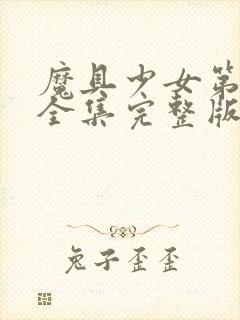 魔具少女第
全集完整版
兔子歪歪